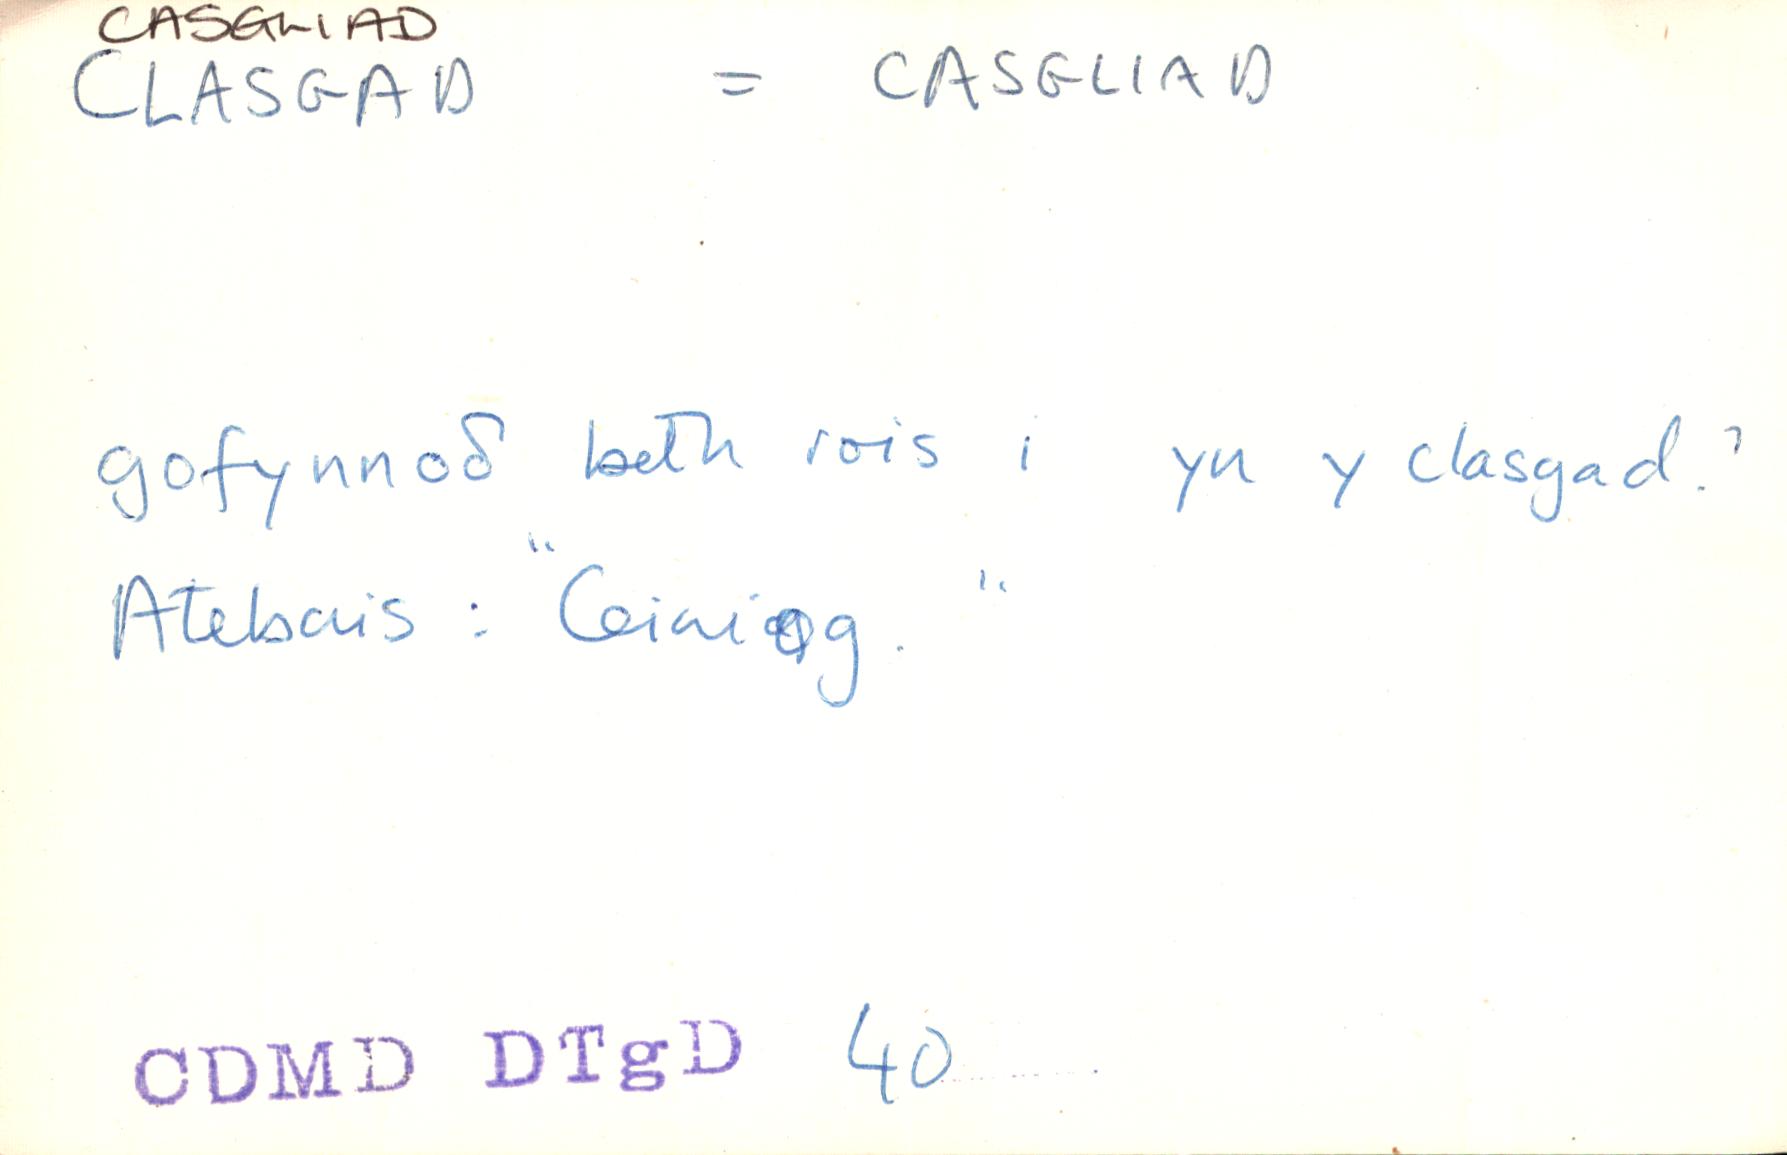 CASGLIAD
CLASGAD = CASGLIAD
gofynnoδ beth rois i yn y clasgad.?
Atebais : "Ceiniog."
CDMD DTgD 40